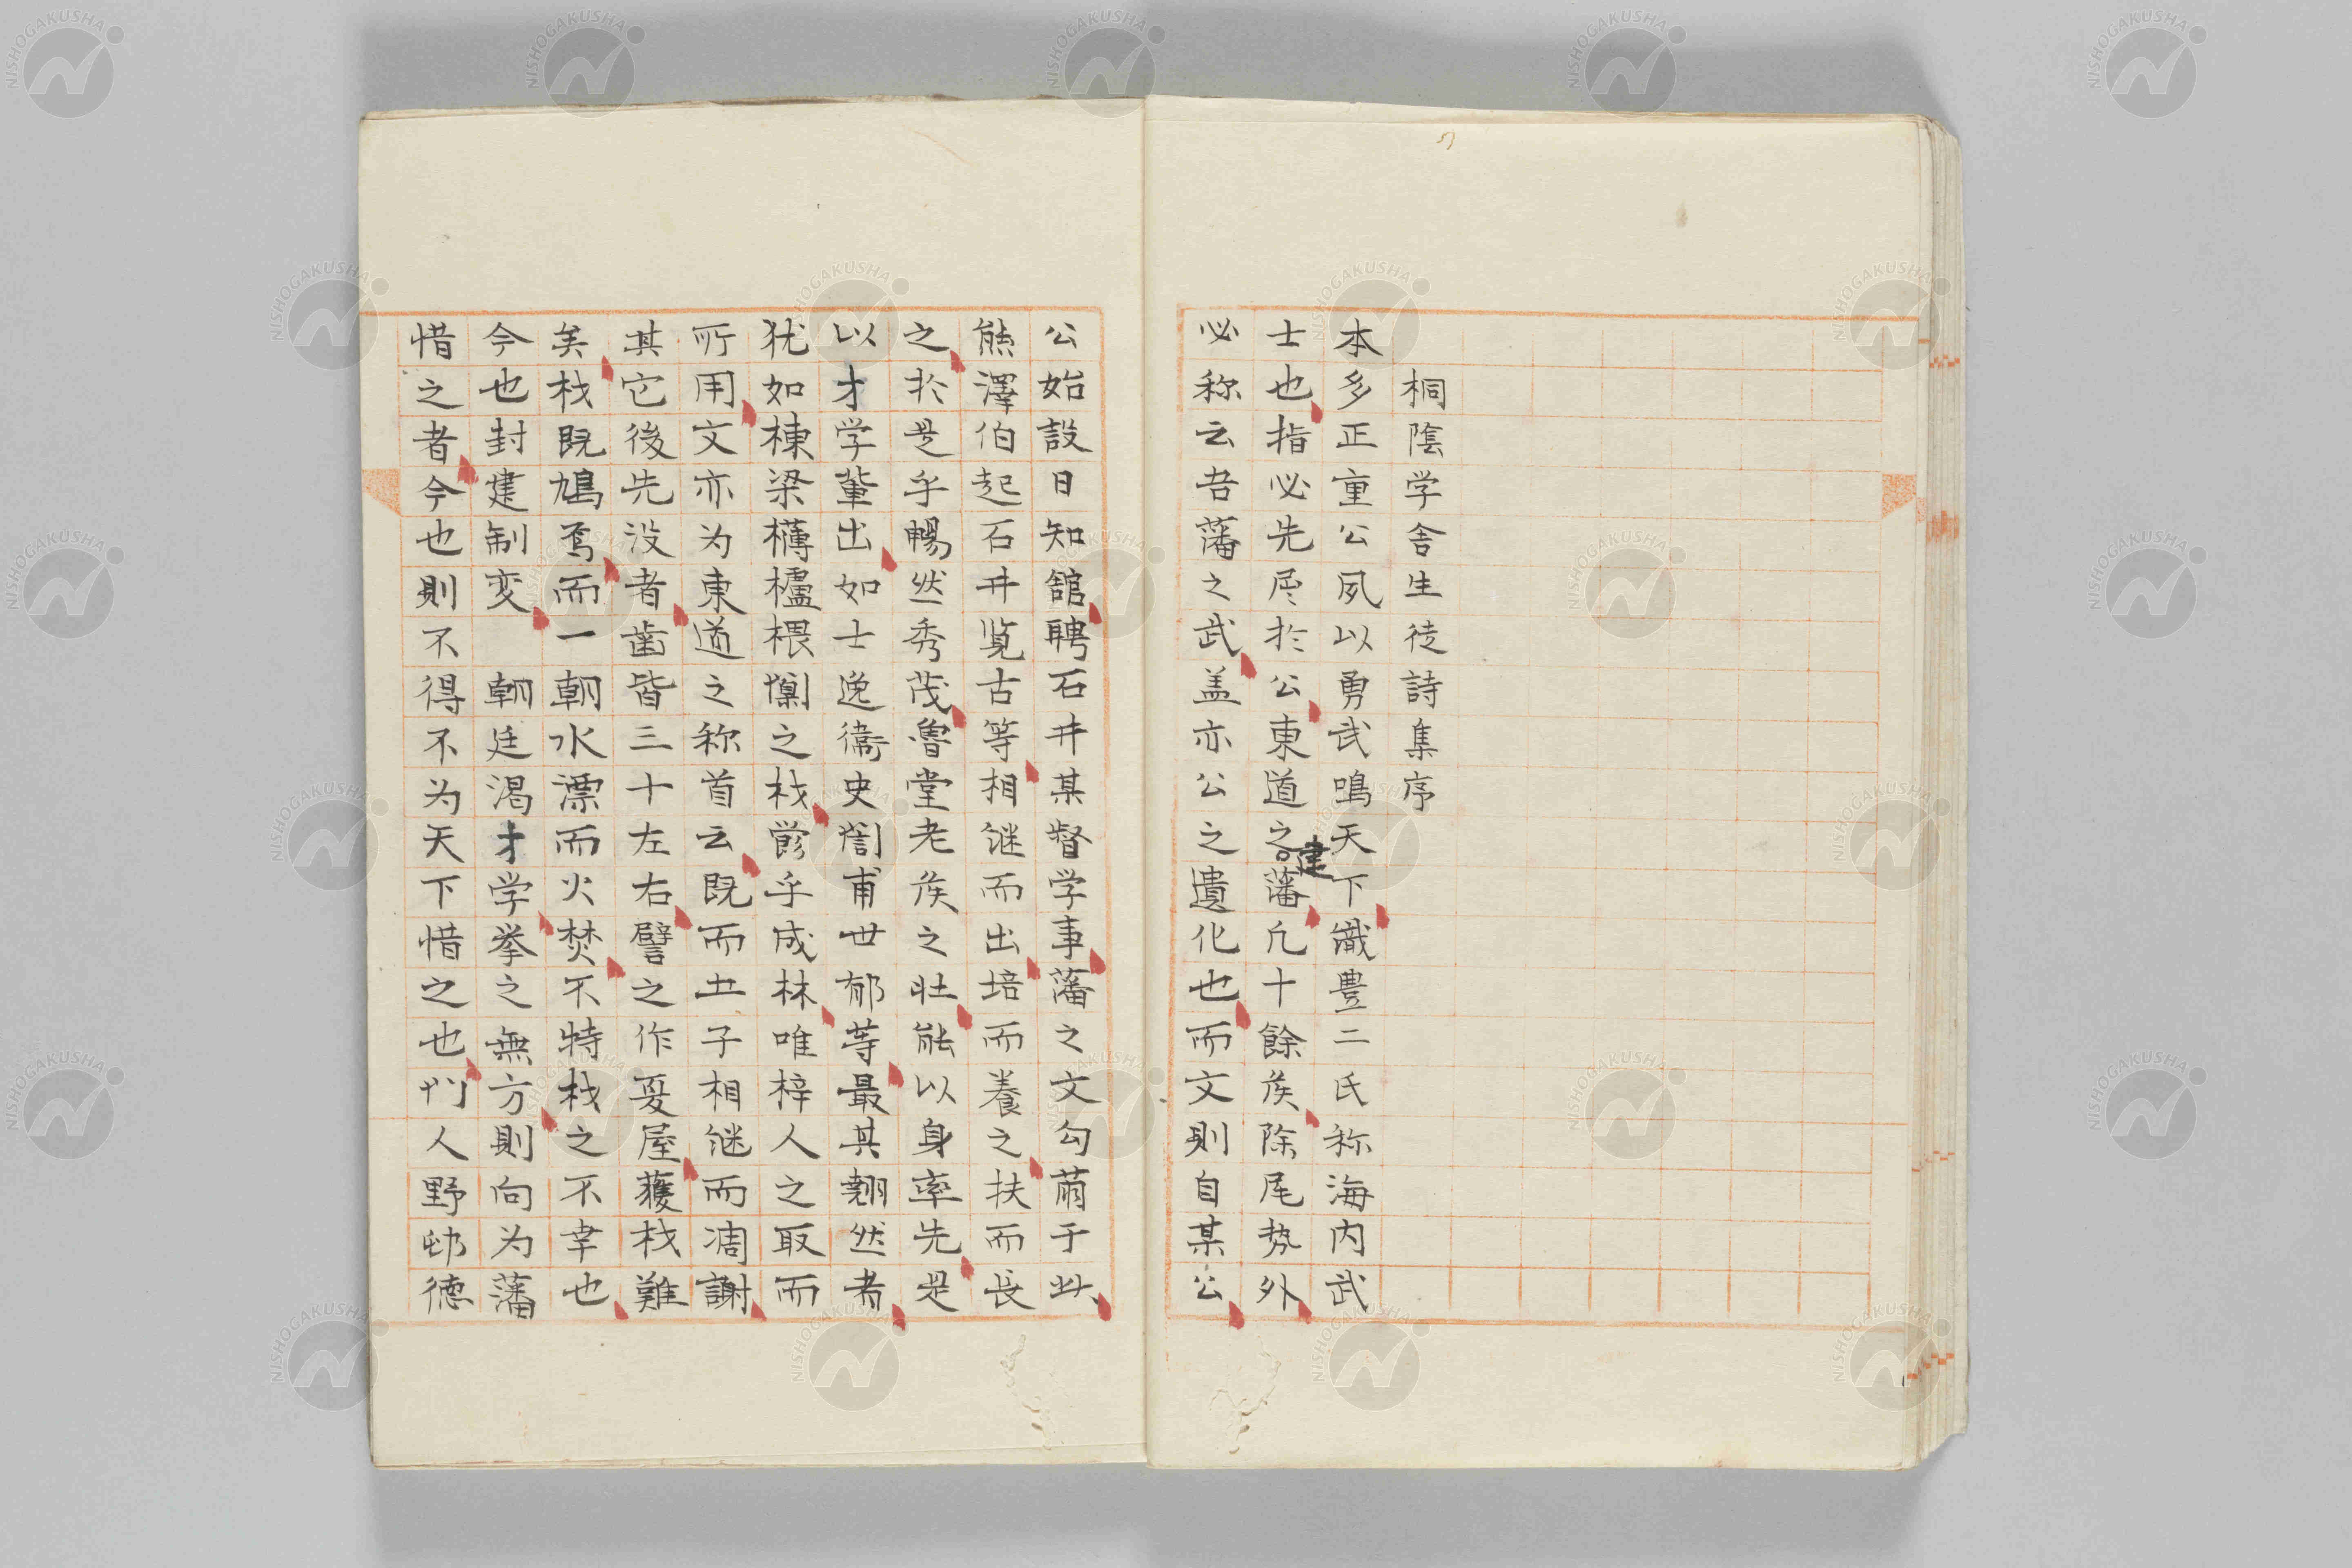 桐陰学舎生徒詩集序
本多正重公夙以勇武鳴天下識豊二氏称海内武
士也指必先屈於公東道之建藩凡十餘矦除尾勢外
必称云吾藩之武盖亦公之遺化也而文則自某公
公始設日知舘聘石井某督学事藩之文勾萠于此
熊澤伯起石井覧古等相継而出培而養之扶而長
之於是乎暢然秀茂魯堂老矦之壮能以身率先是
以才学輩出如士逸衞史彜甫世郁等最其翹然者
犹如棟梁欂櫨椳闑之材欝乎成林唯梓人之取而
所用文亦为東道之称首云既而五子相継而凋謝
其它後先没者歯皆三十左右譬之作夏屋蒦材難
矣材既鳩焉而一朝水漂而火焚不特材之不幸也
今也封建制変 朝廷渇才学挙之無方則向为藩
惜之者今也則不得不为天下惜之也門人野邨徳
NISHOGAKUSHA